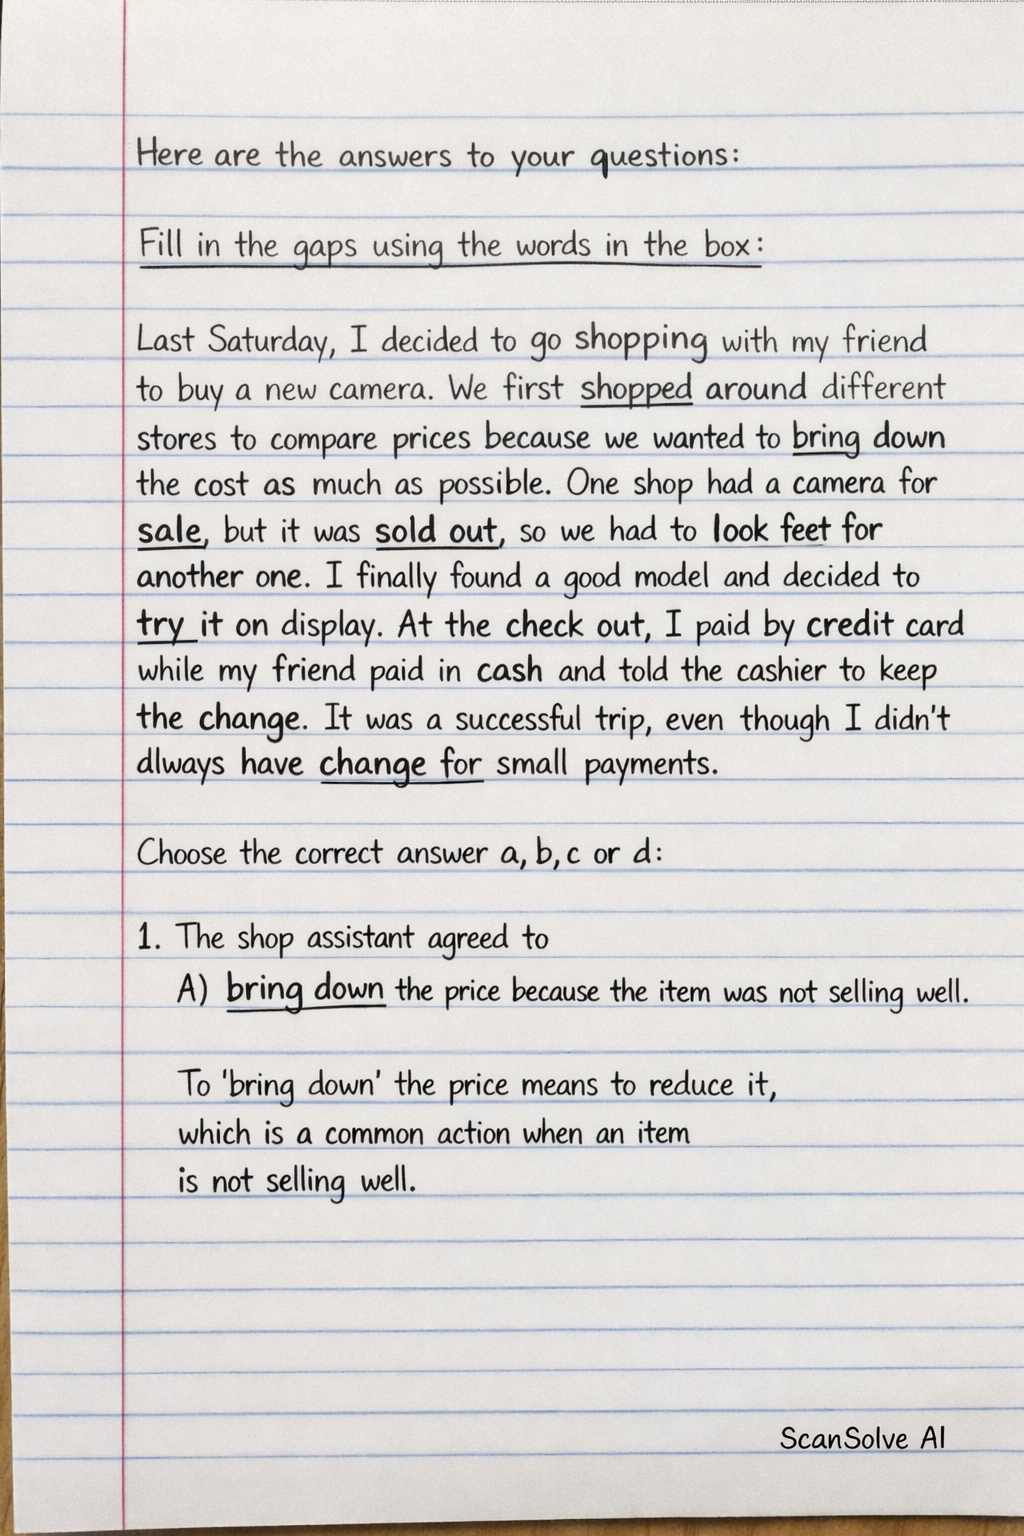 Here are the answers to your questions:
Fill in the gaps using the words in the box:
Last Saturday, I decided to go shopping with my friend
to buy a new camera. We first shopped around different
stores to compare prices because we wanted to bring down
the cost as much as possible. One shop had a camera for
sale, but it was sold out, so we had to look feet for
another one. I finally found a good model and decided to
try it on display. At the check out, I paid by credit card
while my friend paid in cash and told the cashier to keep
the change. It was a successful trip, even though I didn't
dlways have change for small payments.
Choose the correct answer a, b, c or d:
1. The shop assistant agreed to
A) bring down the price because the item was not selling well.
To 'bring down' the price means to reduce it,
which is a common action when an item
is not selling well.
ScanSolve AI